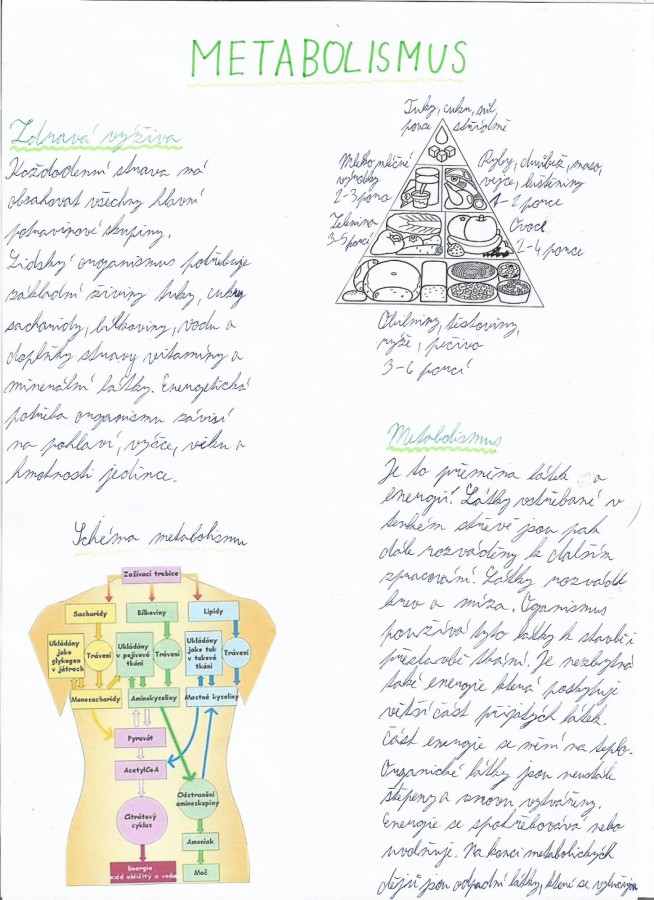 METABOLISMUS
Zdravá výživa
Každodenní strava má
obsahovat všechny hlavní
potravinové skupiny.
Lidský organismus potřebuje
základní živiny tuky, cukry
sacharidy, bílkoviny, vodu a
doplňky stravy vitamíny a
minerální látky. Energetická
potřeba organismu závisí
na pohlaví, výšce, věku a
hmotnosti jedince.
Tuky, cukr, sůl
porce střídmě
Mléko, mléčné
výrobky
2-3 porce
Ryby, drůbež, maso,
vejce, luštěniny
1-2 porce
Zelenina
3-5 porcí
Ovoce
2-4 porce
Obilniny, těstoviny,
rýže, pečivo
3-6 porcí
Metabolismus
Je to přeměna látek a
energií! Látky vstřebané v
tenkém střevě jsou pak
dále rozváděny k dalším
zpracování. Látky rozvádí
krev a míza. Oganismus
používá tyto látky k stavbě i
přestavbě tkání. Je nezbytná
také energie která poskytuje
větší část přijatých látek.
Část energie se mění na teplo.
Organické látky jsou neustále
štěpeny a znovu vytvářeny.
Energie se spotřebovává nebo
uvolňuje. Na konci metabolických
dějů jsou odpadní látky, které se vylučují
Schéma metabolismu
Zažívací trubice
Sacharidy
Bílkoviny
Lipidy
Ukládány
jako
glykogen
v játrech
Trávení
Ukládány
v pojivové
tkáni
Trávení
Ukládány
jako tuk
v tukové
tkáni
Trávení
Monosacharidy
Aminokyseliny
Mastné kyseliny
Pyruvát
AcetylCoA
Odstranění
aminoskupiny
Citrátový
cyklus
Amoniak
Energie
oxid uhličitý a voda
Moč